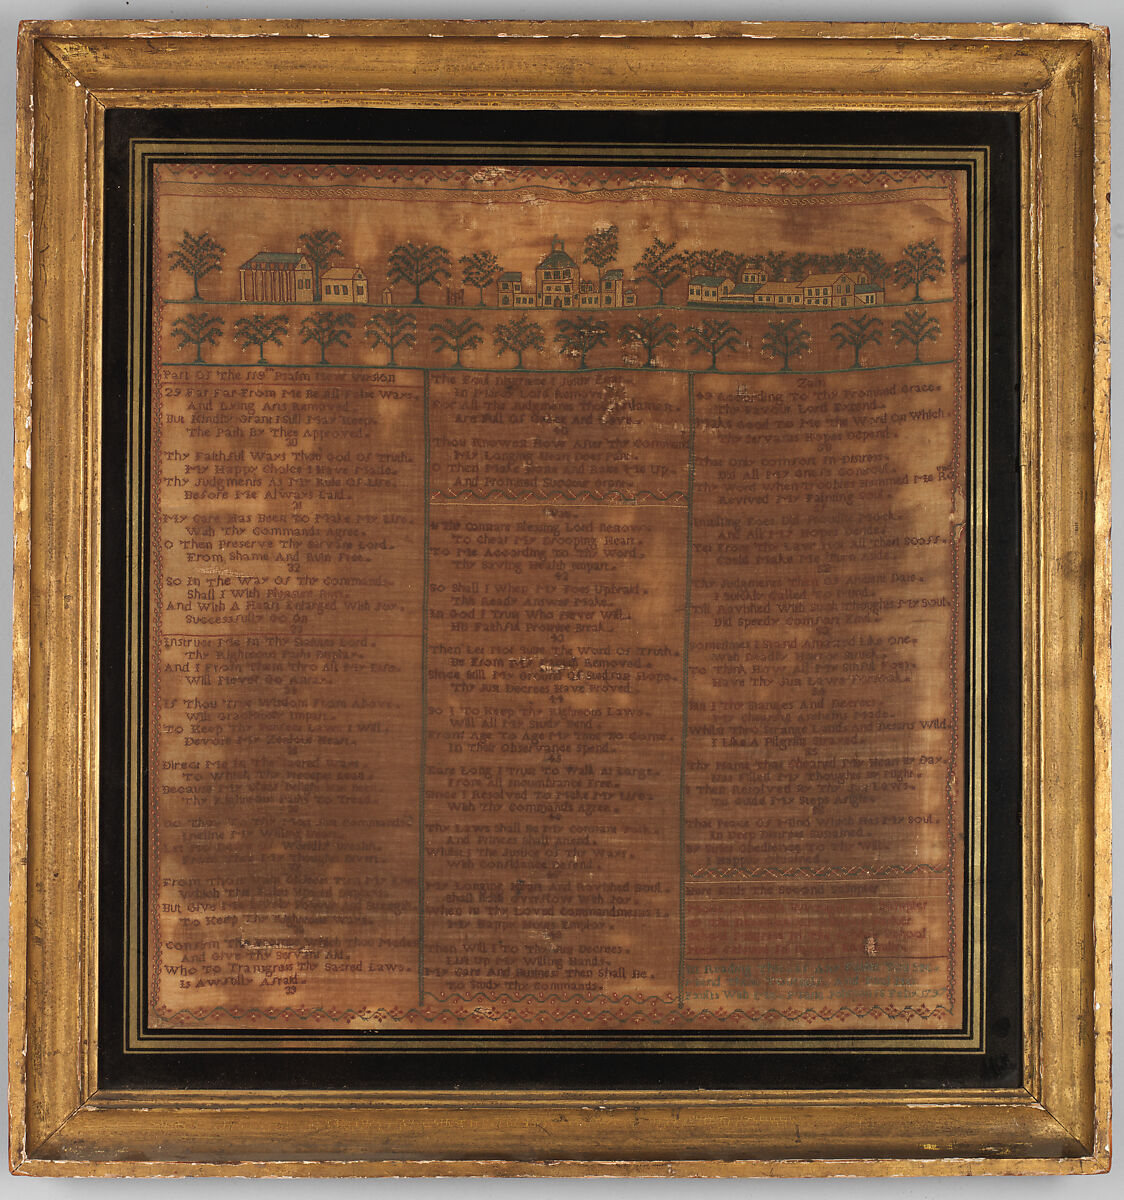 Part Of The 119th Psalm New Version
29 Far Far From Me Be All False Ways.
And Lying Arts Removed.
But Kindly Grant I Still May Keep.
The Path By Thee Approved.
30
Thy Faithful Ways Thou God Of Truth.
My Happy Choice I Have Made.
Thy Judgments As My Rule Of Life.
Before Me Always Laid.
31
My Care Has Been To Make My Life.
With Thy Commands Agree.
O Then Preserve Thy Servant Lord.
From Shame And Ruin Free.
32
So In The Way Of Thy Commands.
Shall I With Pleasure Run.
And With A Heart Enlarged With Joy.
Successfully Go On
Instruct Me In Thy Statutes Lord.
Thy Righteous Paths Display.
And I From Them Thro All My Life.
Will Never Go Astray.
34
If Thou True Wisdom From Above.
Wilt Graciously Impart.
To Keep Thy Perfect Laws I Will.
Devote My Zealous Heart.
Direct Me In The Sacred Ways.
To Which Thy Precepts Lead.
Because My Chief Delight Has Been
Thy Righteous Paths To Tread.
Do Thou To Thy Most Just Commands
Incline My Willing Heart.
Let No Desire Of Worldly Wealth.
From Thee My Thoughts Divert.
From Those Vain Objects Turn My
Which This False World Displays.
But Give Me Lively Power And Strength
To Keep Thy Righteous Ways.
Confirm The Promise Which Thou Madest
And Give Thy Servant Aid.
Who To Transgress Thy Sacred Laws.
Is Awfully Afraid.
39
The Foul Disgrace I Justly Fear.
In Mercy Lord Remove.
For All The Judgments Thou Ordainest.
Are Full Of Grace And Love.
40
Thou Knowest How After Thy Commands
My Longing Heart Does Pant.
O Then Make Haste And Raise Me Up.
And Promised Succour Grant.
Vau.
41 Thy Constant Blessing Lord Bestow.
To Chear My Drooping Heart.
To Me According To Thy Word.
Thy Saving Health Impart.
42
So Shall I When My Foes Upbraid.
This Ready Answer Make.
In God I Trust Who Never Will.
His Faithful Promise Break.
43
Then Let Not Quite The Word Of Truth.
Be From My Mouth Removed.
Since Still My Ground Of Stedfast Hope.
Thy Just Decrees Have Proved.
44
So I To Keep Thy Righteous Laws.
Will All My Study Bend.
From Age To Age My Time To Come.
In Their Observance Spend.
45
Eare Long I Trust To Walk At Large.
From All Incumbrance Free.
Since I Resolved To Make My Life.
With Thy Commands Agree.
46
Thy Laws Shall Be My Constant Talk.
And Princes Shall Attend.
Whilst I The Justice Of Thy Ways.
With Confidence Defend.
My Longing Heart And Ravished Soul.
Shall Both Overflow With Joy
When In Thy Loved Commandments I.
My Happy Hours Employ.
Then Will I To Thy Just Decrees.
Lift Up My Willing Hands.
My Care And Business Then Shall Be.
To Study Thy Commands.
Zain
49 According To Thy Promised Grace.
Thy Favour Lord Extend.
Make Good To Me The Word On Which.
Thy Servants Hopes Depend.
50
That Only Comfort In Distress.
Did All My Griefs Controul.
Thy Word When Troubles Hemmed Me Round
Revived My Fainting Soul.
Insulting Foes Did Proudly Mock.
And All My Hopes Deride.
Yet From Thy Laws Not All Their Scoffs.
Could Make Me Turn Aside
52
Thy Judgments Then Of Ancient Date.
I Quickly Called To Mind.
Till Ravished With Such Thoughts My Soul.
Did Speedy Comfort Find.
53
Sometimes I Stand Amazed Like One.
With Deadly Horror Struck.
To Think How All My Sinful Foes.
Have Thy Just Laws Forsook.
54
But I Thy Statutes And Decrees.
My Chearful Anthems Made.
Whilst Thro Strange Lands And Desarts Wild.
I Like A Pilgrim Strayed.
55
Thy Name That Cheared My Heart By Day.
Has Filled My Thoughts By Night.
I Then Resolved By Thy Just Laws.
To Guide My Steps Aright.
56
That Peace Of Mind Which Has My Soul.
In Deep Distress Sustained.
By Strict Obedience To Thy Will.
I Happily Obtained.
Here Ends The Second Sampler
School